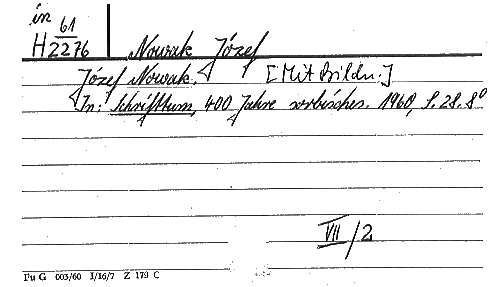 in 61
H 2276 Nowak Józef
Józef Nowak. [Mit Bildn.]
In: Schrifttum, 400 Jahre sorbisches. 1960, S. 28. 8°
VII/2
Fu G 003/60 I/16/7 Z 179 C